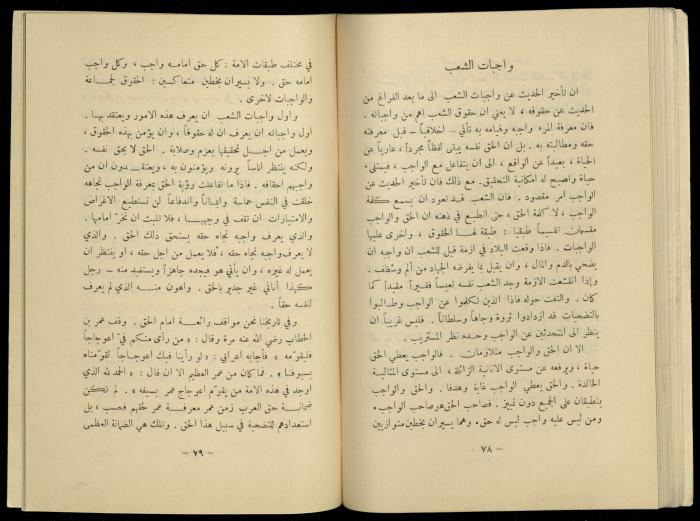 واجبات الشعب
ان تأخير الحديث عن واجبات الشعب الى ما بعد الفراغ من
الحديث عن حقوقه ، لا يعني ان حقوق الشعب اهم من واجباته .
فان معرفة المرء واجبه وقيامه به تأتي – اخلاقياً – قبل معرفته
حقه ومطالبته به . بل ان الحق نفسه يبقى لفظاً مجرداً ، عارياً عن
الحياة ، بعيداً عن الواقع ، الى ان يتفاعل مع الواجب ، فيمتلىء
حياة ويصبح له امكانية التحقيق . مع ذلك فان تأخير الحديث عن
الواجب أمر مقصود . فان الشعب قد تعود ان يسمع كلمة
الواجب ، لا كلمة الحق ، حتى انطبع في ذهنه ان الحق والواجب
مقسمان تقسيماً طبقياً : طبقة لها الحقوق ، واخرى عليها
الواجبات . فاذا وقعت البلاد في ازمة قيل للشعب ان واجبه ان
يضحي بالدم والمال ، وان يقبل بما يفرضه الجهاد من ألم وشظف .
واذا انقشعت الازمة وجد الشعب نفسه تعيساً فقيراً مقيداً كما
كان . والتفت حوله فاذا الذين تكلموا عن الواجب وطالبوا
بالتضحيات قد ازدادوا ثروة وجاهاً وسلطاناً . فليس غريباً ان
ينظر الى المتحدثين عن الواجب وحده نظر المستريب .
الا ان الحق والواجب متلازمان . فالواجب يعطي الحق
حياة ، ويرفعه عن مستوى الانانية الزائلة ، الى مستوى المثالية
الخالدة . والحق يعطي الواجب غاية وهدفا . والحق والواجب
ينطبقان على الجميع دون تمييز . فصاحب الحق هو صاحب الواجب .
ومن ليس عليه واجب ليس له حق . وهما يسيران بخطين متوازيين
– ٧٨ –
في مختلف طبقات الامة : كل حق امامه واجب ، وكل واجب
امامه حق . ولا يسيران بخطين متعاكسين : الحقوق لجماعة
والواجبات لاخرى .
واول واجبات الشعب ان يعرف هذه الامور ويعتقد بها .
اول واجباته ان يعرف ان له حقوقاً ، وان يؤمن بهذه الحقوق ،
ويعمل من اجل تحقيقها بعزم وصلابة . الحق لا يحق نفسه .
ولكنه ينتظر اناساً يرونه ويؤمنون به ، ويعتقدون ان من
واجبهم احقاقه . فاذا ما تفاعلت رؤية الحق بمعرفة الواجب تجاهه
خلقت في النفس حماسة وايماناً واندفاعاً لن تستطيع الاغراض
والامتيازات ان تقف في وجهها ، فلا تلبث ان تخرّ امامها .
والذي يعرف واجبه تجاه حقه يستحق ذلك الحق . والذي
لا يعرف واجبه تجاه حقه ، فلا يعمل من اجل حقه ، او ينتظر ان
يعمل له غيره ، وان يأتي هو فيجده جاهزاً ويستفيد منه – رجل
كهذا أناني غير جدير بالحق . واهون منه الذي لم يعرف
لنفسه حقاً .
وفي تاريخنا نحن مواقف رائعة امام الحق . وقف عمر بن
الخطاب رضي الله عنه مرة وقال : « من رأى منكم فيّ اعوجاجاً
فليقومه » فأجابه اعرابي : « لو رأينا فيك اعوجاجاً لقومناه
بسيوفنا » . فما كان من عمر العظيم الا ان قال : « الحمد لله الذي
اوجد في هذه الامة من يقوّم اعوجاج عمر بسيفه » . لم تكن
ضمانة حق العرب زمن عمر معرفة عمر حقهم فحسب ، بل
استعدادهم للتضحية في سبيل هذا الحق . وتلك هي الضمانة العظمى
– ٧٩ –